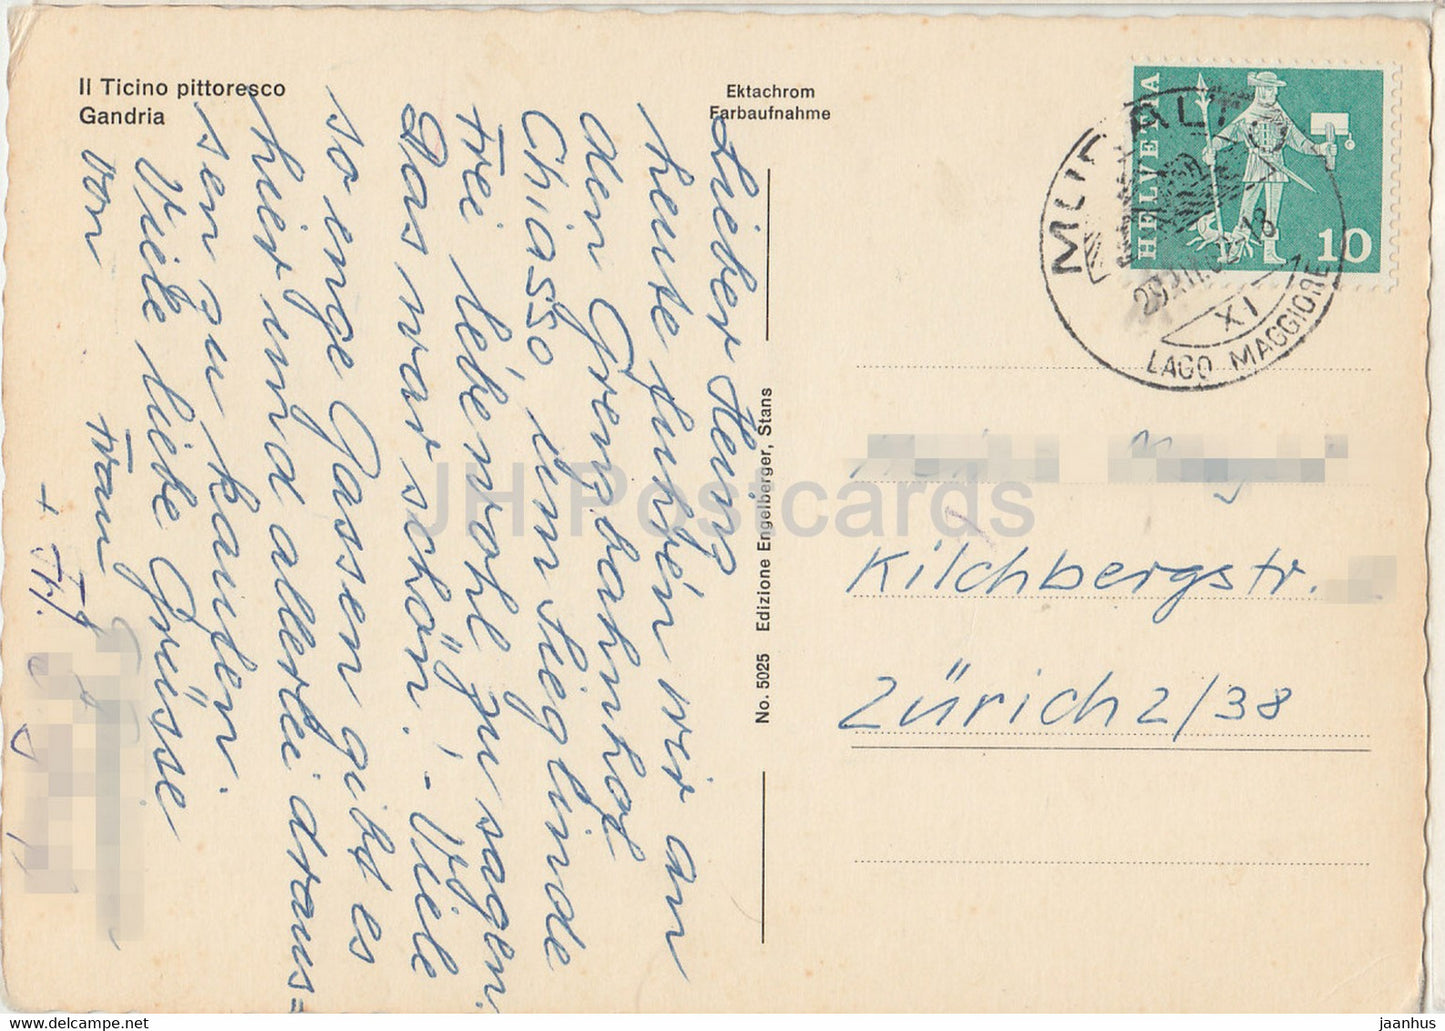 Il Ticino pittoresco
Gandria
Ektachrom
Farbaufnahme
Lieber Heinz
heute fuhren wir an
den Grenzbahnhof
Chiasso, um Sieglinde
Frei lebewohl zu sagen.
Das war schön! - Viele
so enge Gassen gibt es
hier und allerlei draus=
sen zu kaufen.
Viele liebe Grüsse
von
Frau
+ Frl.
No. 5025 Edizione Engelberger, Stans
HELVETIA
10
MURALTO
XI
LAGO MAGGIORE
Kilchbergstr.
Zürich 2/38
JH Postcards
delcampe.net
jaanhus